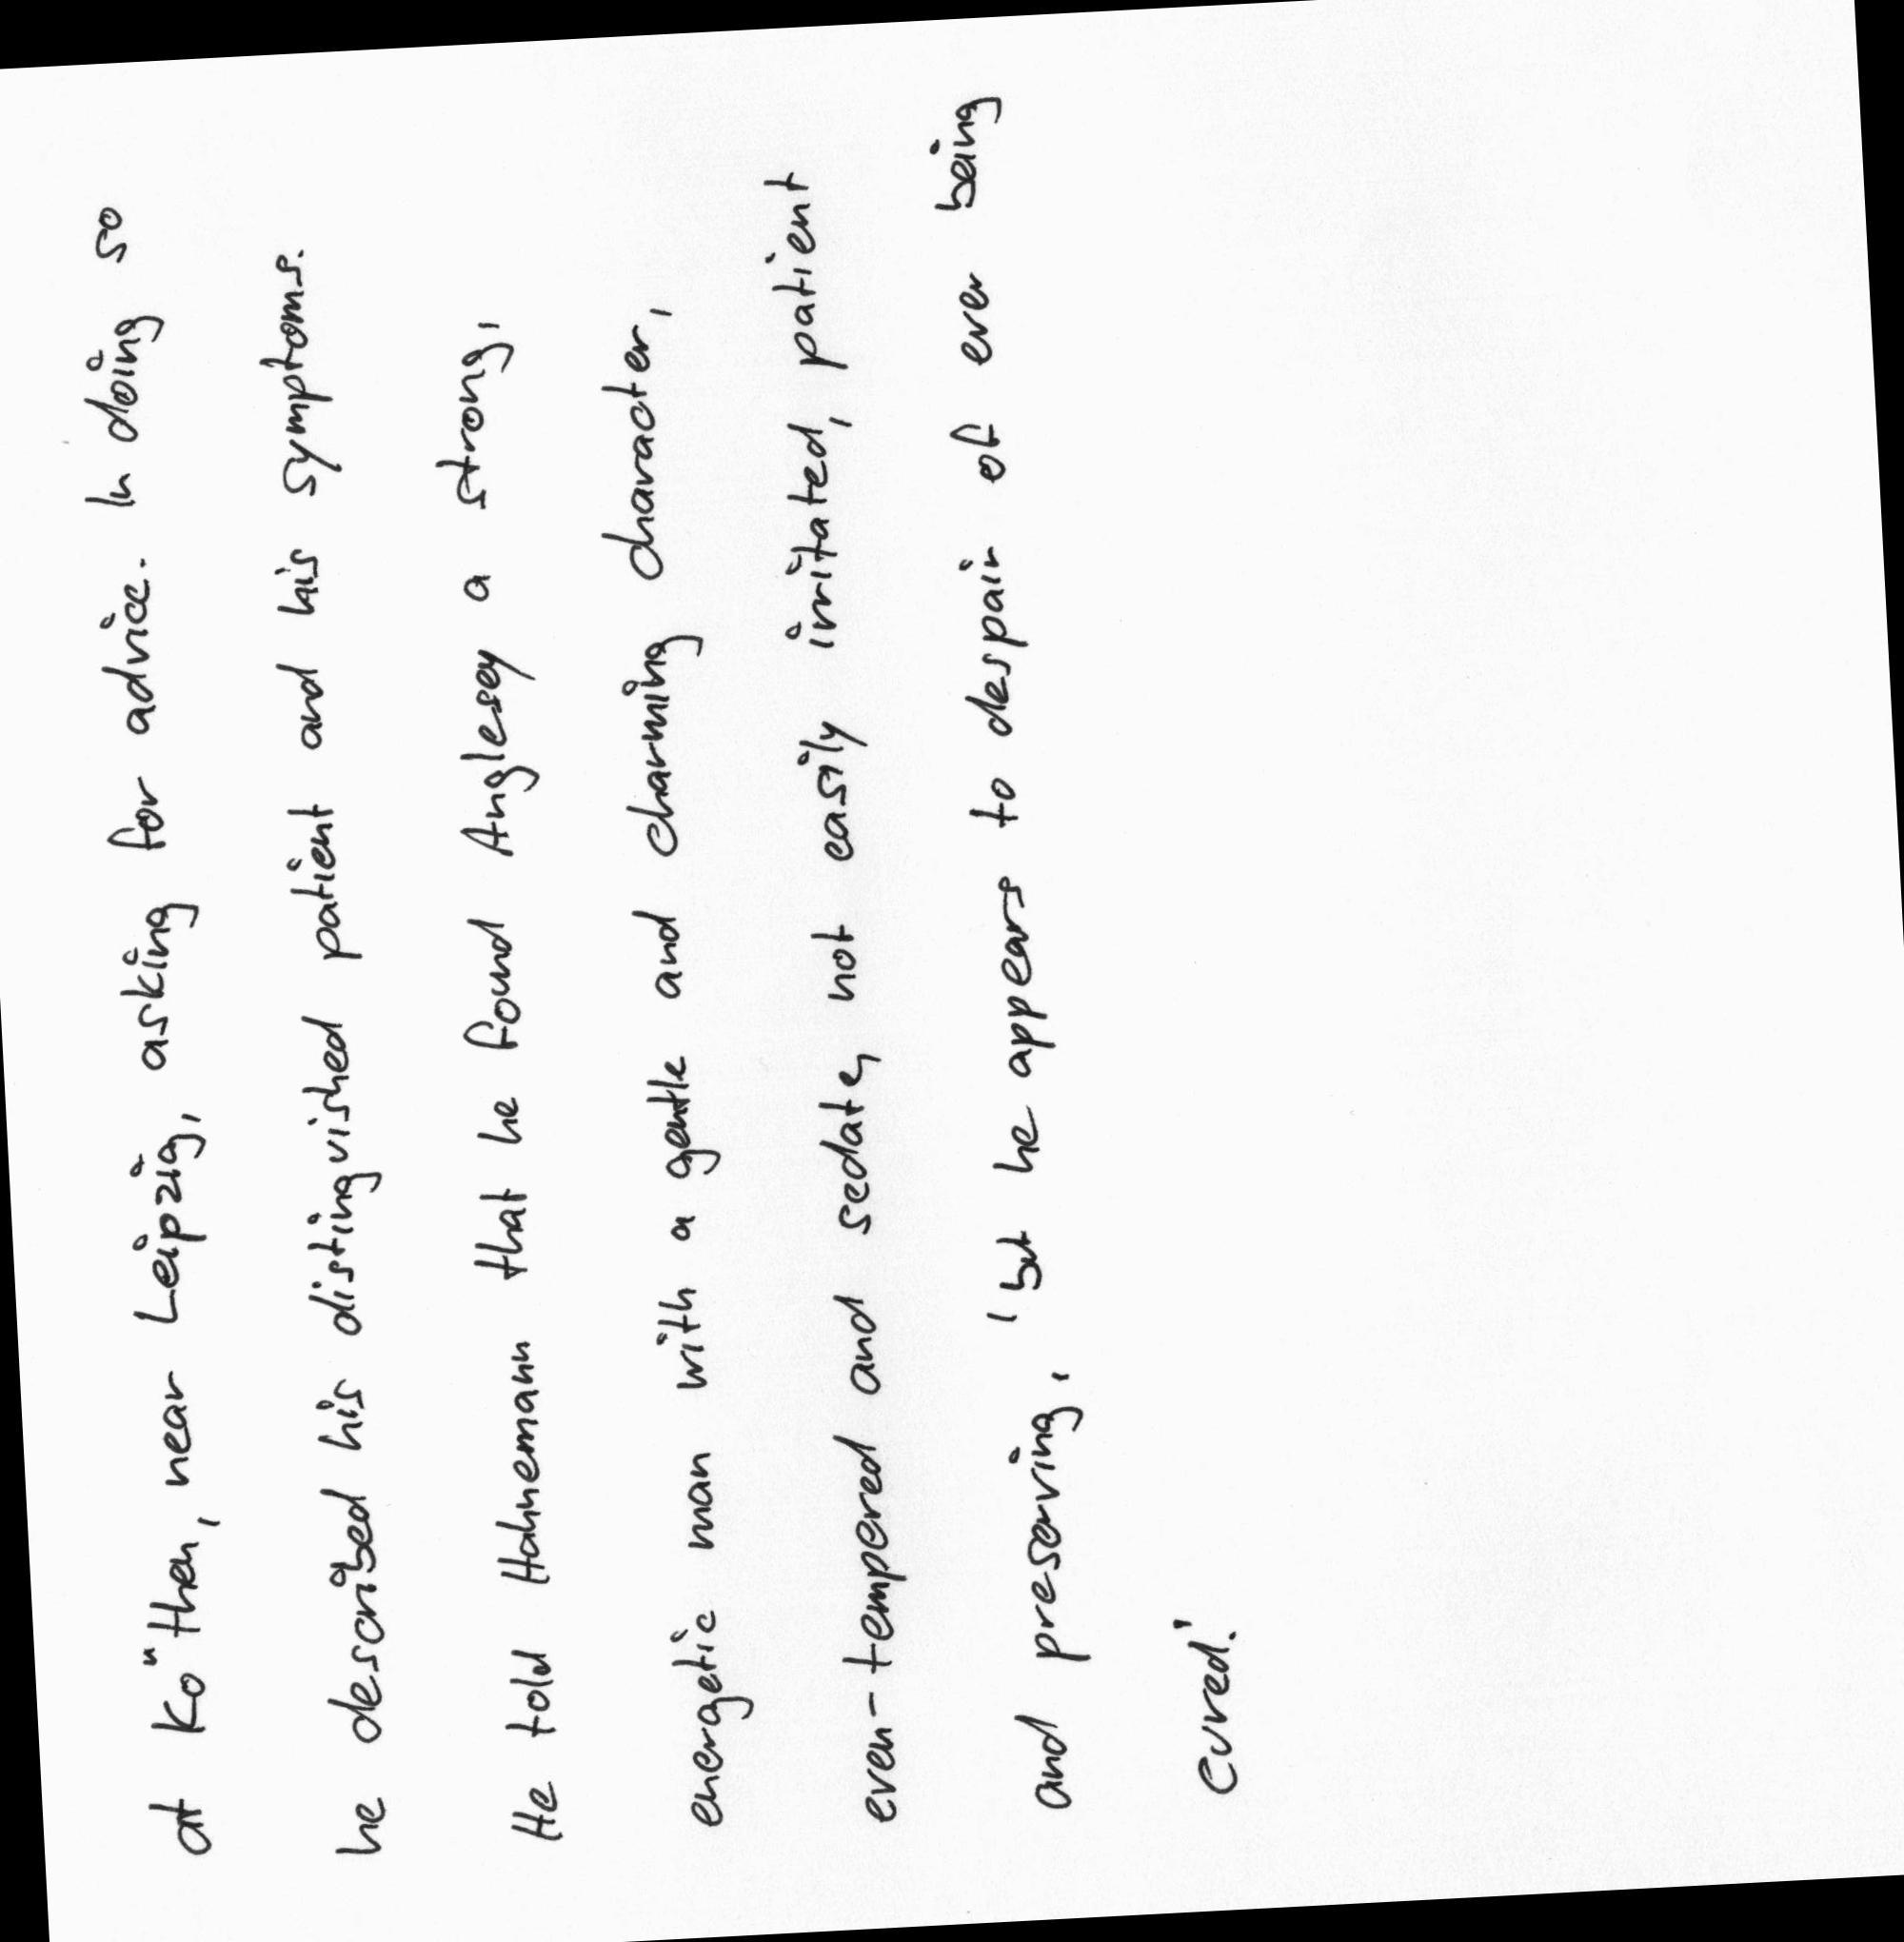 at Ko"then, near Leipzig, asking for advice. In doing so
he described his distinguished patient and his symptoms.
He told Hahnemann that he found Anglesey a strong,
energetic man with a gentle and charming character,
even-tempered and sedate, not easily irritated, patient
and preserving, 'but he appears to despair of ever being
cured.'